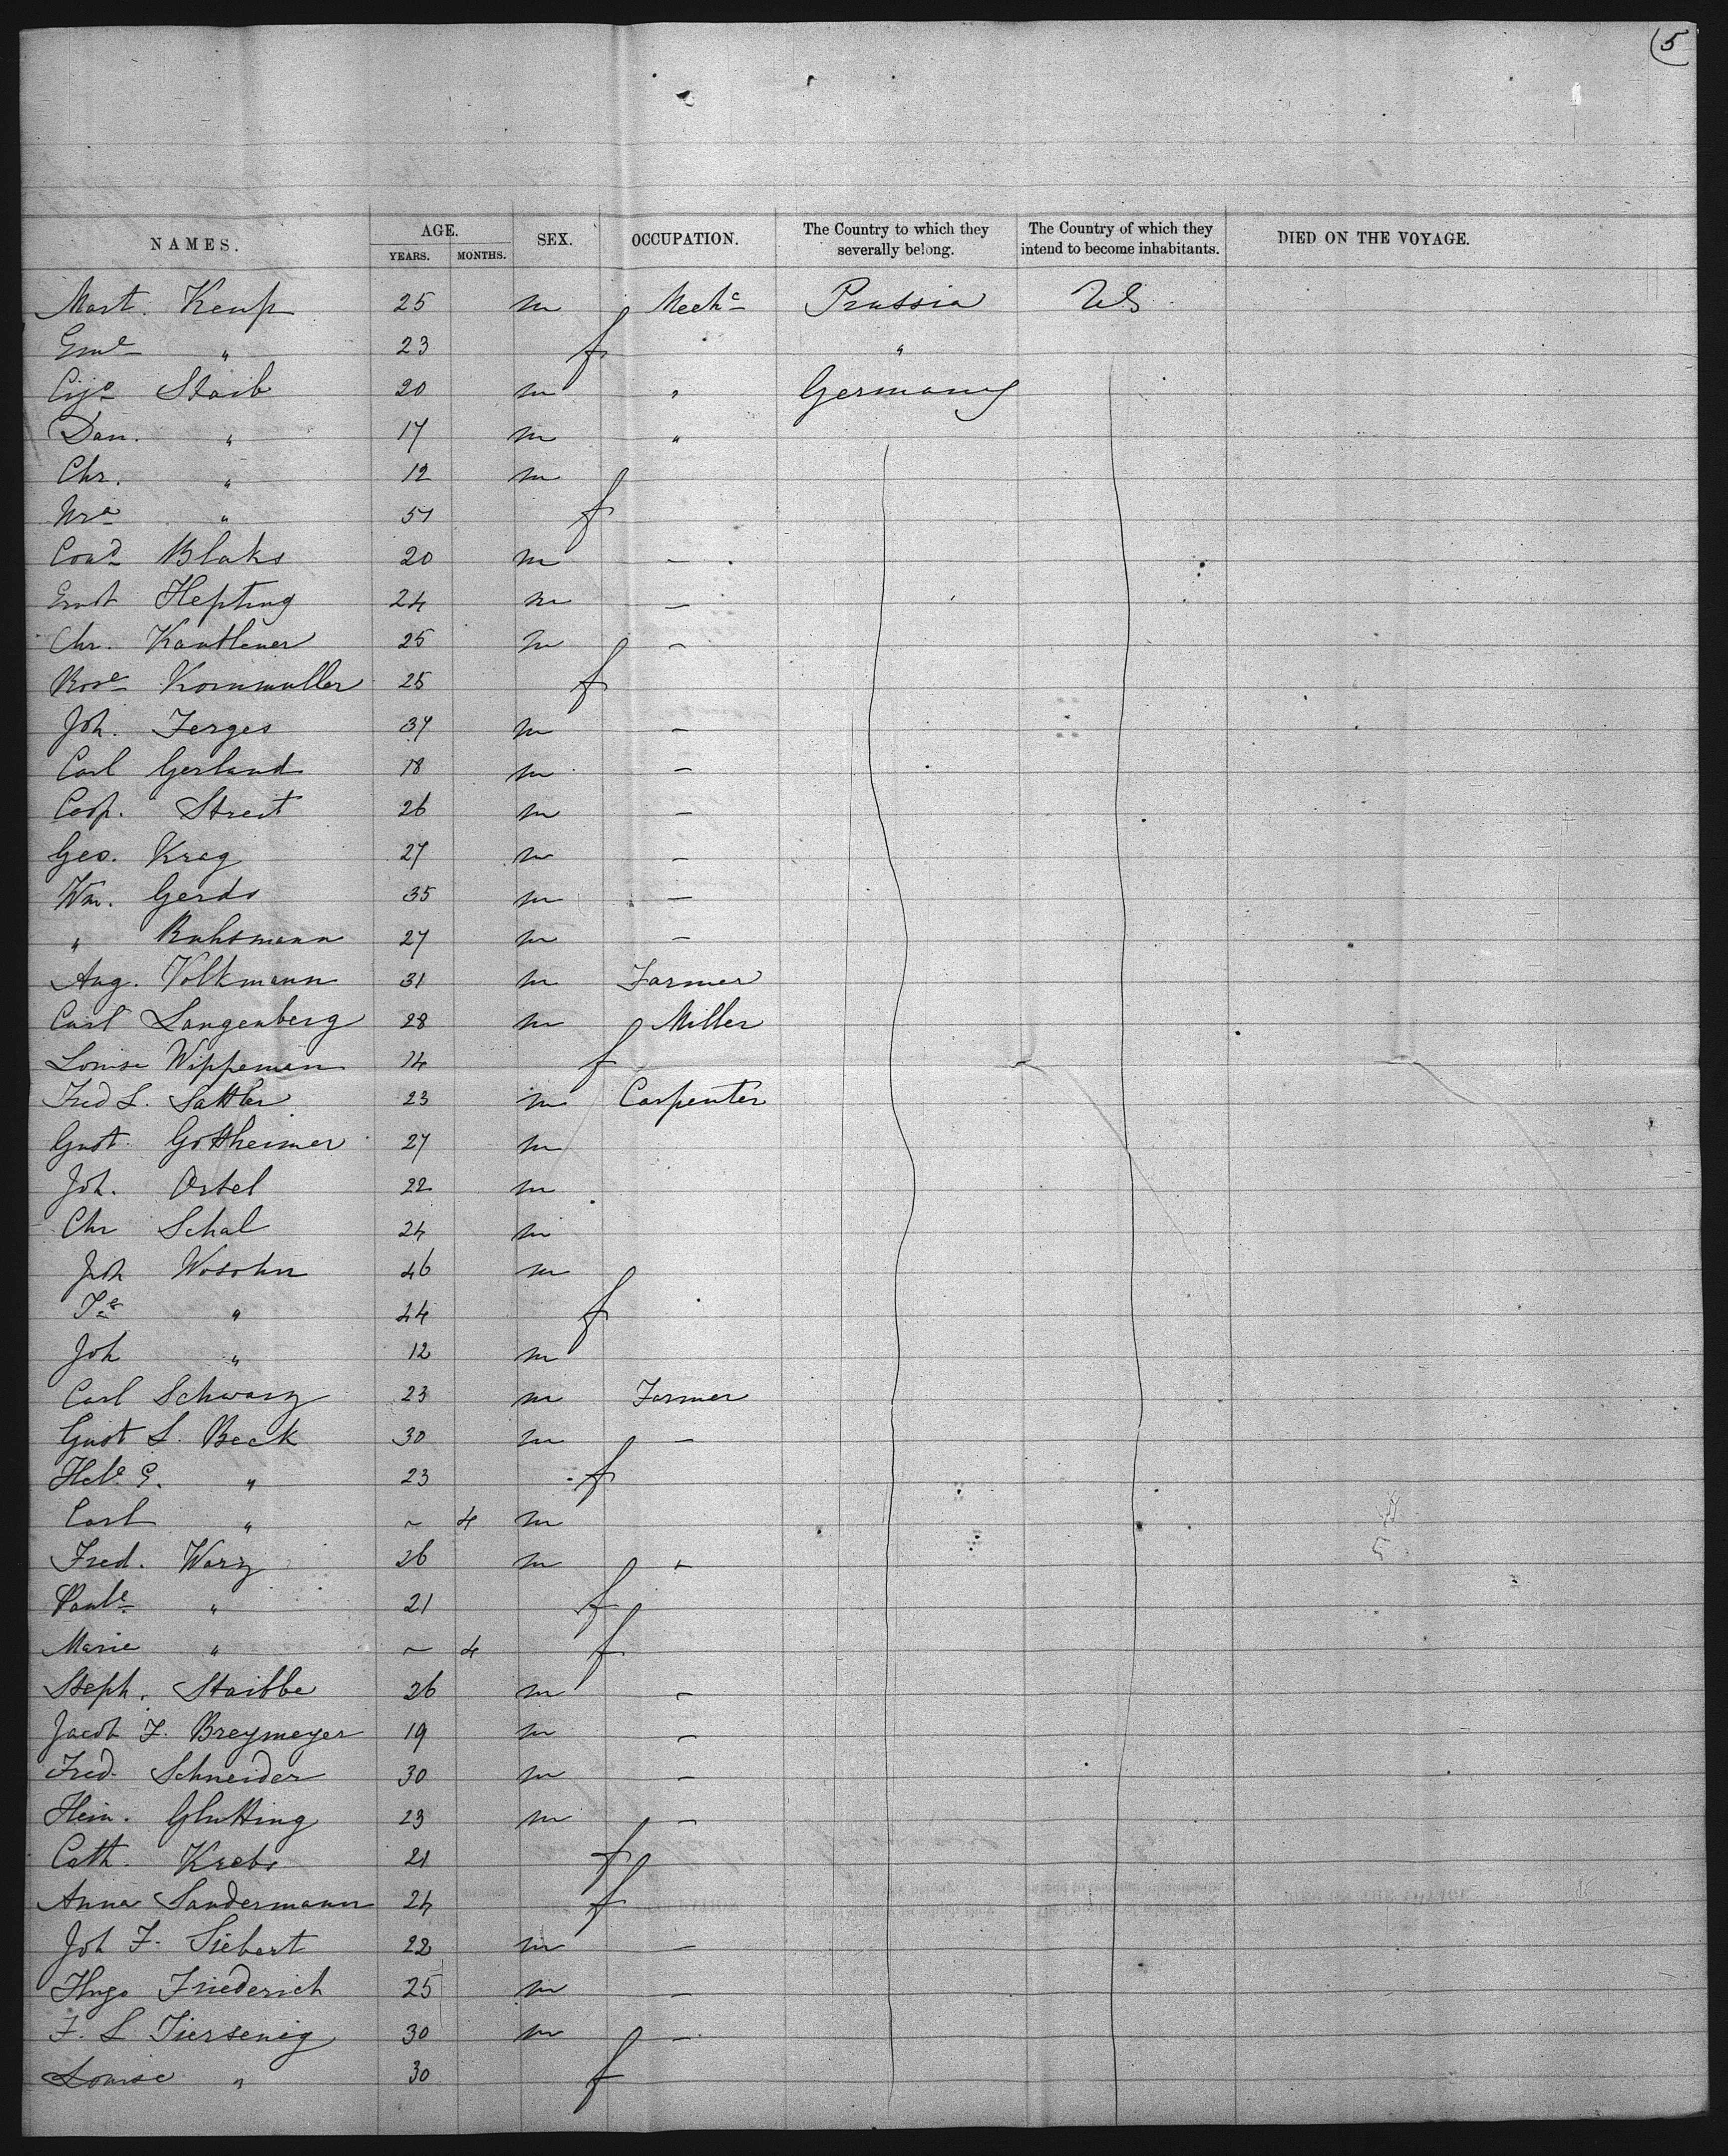 (5
NAMES. AGE. SEX. OCCUPATION. The Country to which they severally belong. The Country of which they intend to become inhabitants. DIED ON THE VOYAGE.
YEARS. MONTHS.
Mart. Kemp 25 m Mechc Prussia US
Eme " 23 f "
Staib 20 m " Germany
Dan. " 17 m "
Chr. " 12 m
" 51 f
Cond Blaks 20 m -
Ernst Hepting 24 m -
Chr. 25 m -
Rose Kornmuller 25 f
Joh. Jerges 37 m -
Carl Gerland 18 m -
Casp. Streit 26 m -
Geo. Krag 27 m -
Wm. Gerds 35 m -
" Ruhsmann 27 m -
Aug. Volkmann 31 m Farmer
Carl Langenberg 28 m Miller
Louise Wippeman 14 f
Fred L. Sattler 23 m Carpenter
Gust. Gottheimer 27 m
Joh. Ortel 22 m
Chr Schal 24 m
Joh Wosohn 46 m
" 44 f
Joh " 12 m
Carl Schwarz 23 m Farmer
Gust L. Beck 30 m -
" 23 f
Carl " ~ 4 m
Fred. Warz 26 m -
Paule " 21 f
Marie " ~ 4 f
Steph. Staibbe 26 m -
Jacob F. Breymeyer 19 m -
Fred. Schneider 30 m -
Hein. Glutting 23 m -
Cath. Krebs 21 f
Anna Sandermann 24 f
Joh F. Siebert 22 m -
Hugo Friederich 25 m -
F. L Tiersenig 30 m -
Louise " 30 f